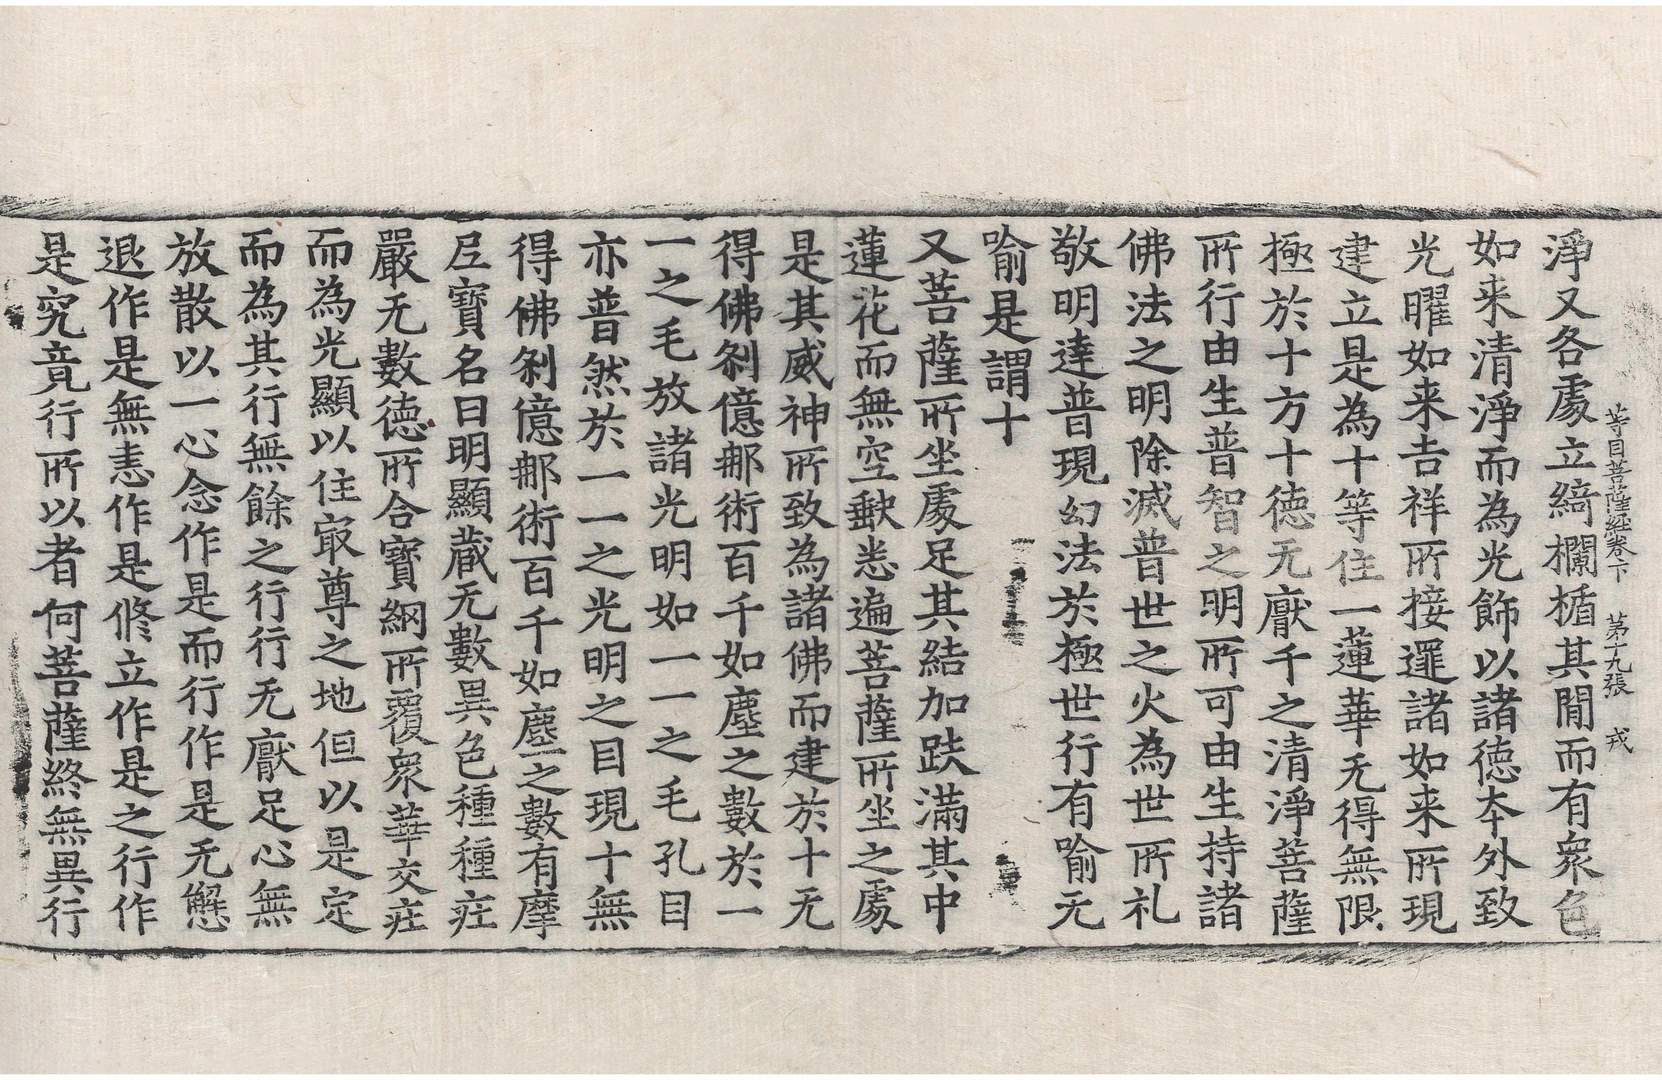 等目菩薩經卷下　第十九張　戎
淨又各處立綺欄楯其間而有衆色
如来清淨而為光飾以諸德夲外致
光曜如来吉祥所接遝諸如来所現
建立是為十等住一蓮華无得無限
極於十方十德无厭千之清淨菩薩
所行由生普智之明所可由生持諸
佛法之明除滅普世之火為世所礼
敬明達普現幻法於極世行有喻无
喻是謂十
又菩薩所坐處足其結加趺滿其中
蓮花而無空缺悉遍菩薩所坐之處
是其威神所致為諸佛而建於十无
得佛剎億那術百千如塵之數於一
一之毛放諸光明如一一之毛孔目
亦普然於一一之光明之目現十無
得佛剎億那術百千如塵之數有摩
尼寶名曰明顯藏无數異色種種疘
嚴无數德所合寶網所覆衆華交疘
而為光顯以住㝡尊之地但以是定
而為其行無餘之行行无厭足心無
放散以一心念作是而行作是无懈
退作是無恚作是修立作是之行作
是究竟行所以者何菩薩終無異行